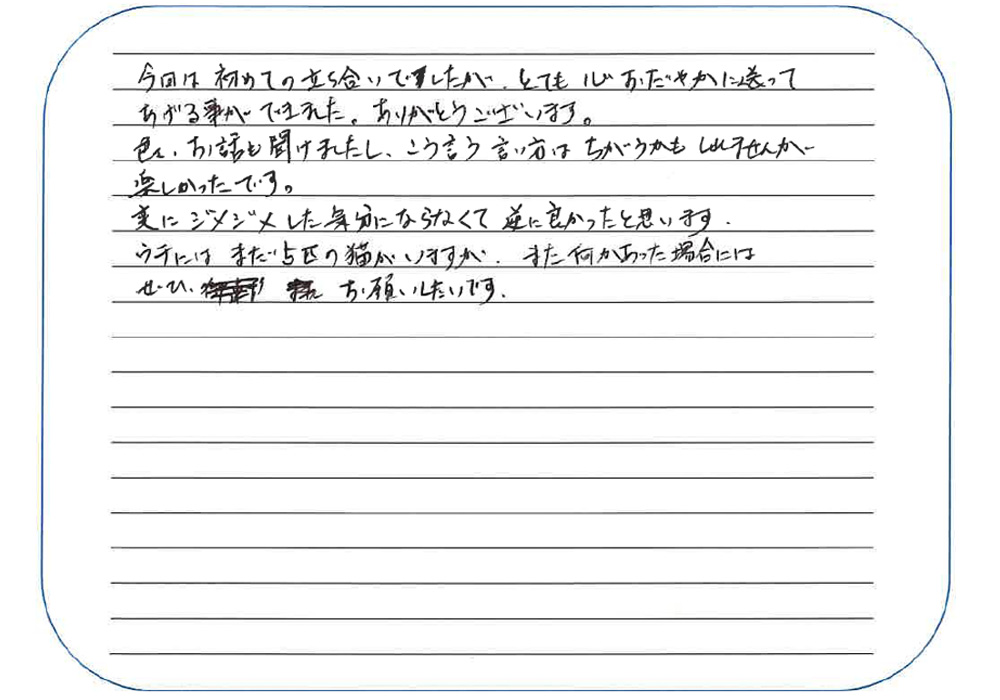 今回は初めての立ち合いでしたが、とても心おだやかに送って
あげる事ができました。ありがとうございます。
色々、お話も聞けましたし、こう言う言い方はちがうかもしれませんが
楽しかったです。
変にジメジメした気分にならなくて逆に良かったと思います。
ウチにはまだ5匹の猫がいますが、また何かあった場合には
ぜひ、お願いしたいです。